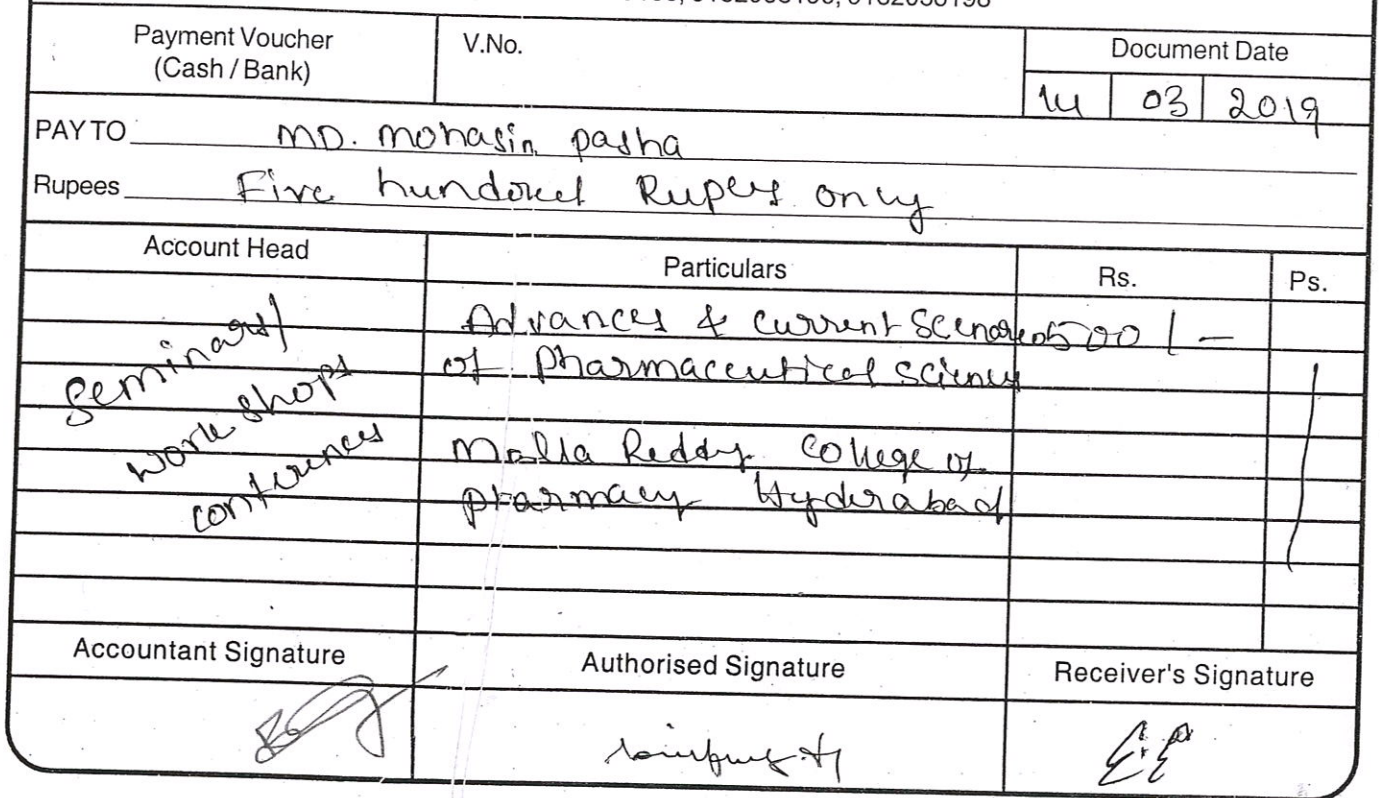 Payment Voucher
(Cash / Bank)
V.No.
Document Date
14 03 2019
PAY TO MD. Mohasin pasha
Rupees Five hundred Rupees only
Account Head Particulars Rs. Ps.
Seminars/
work shops
conferences
Advances & current Scenario 500/-
of pharmaceutical science
Malla Reddy college of
pharmacy Hyderabad
Accountant Signature Authorised Signature Receiver's Signature